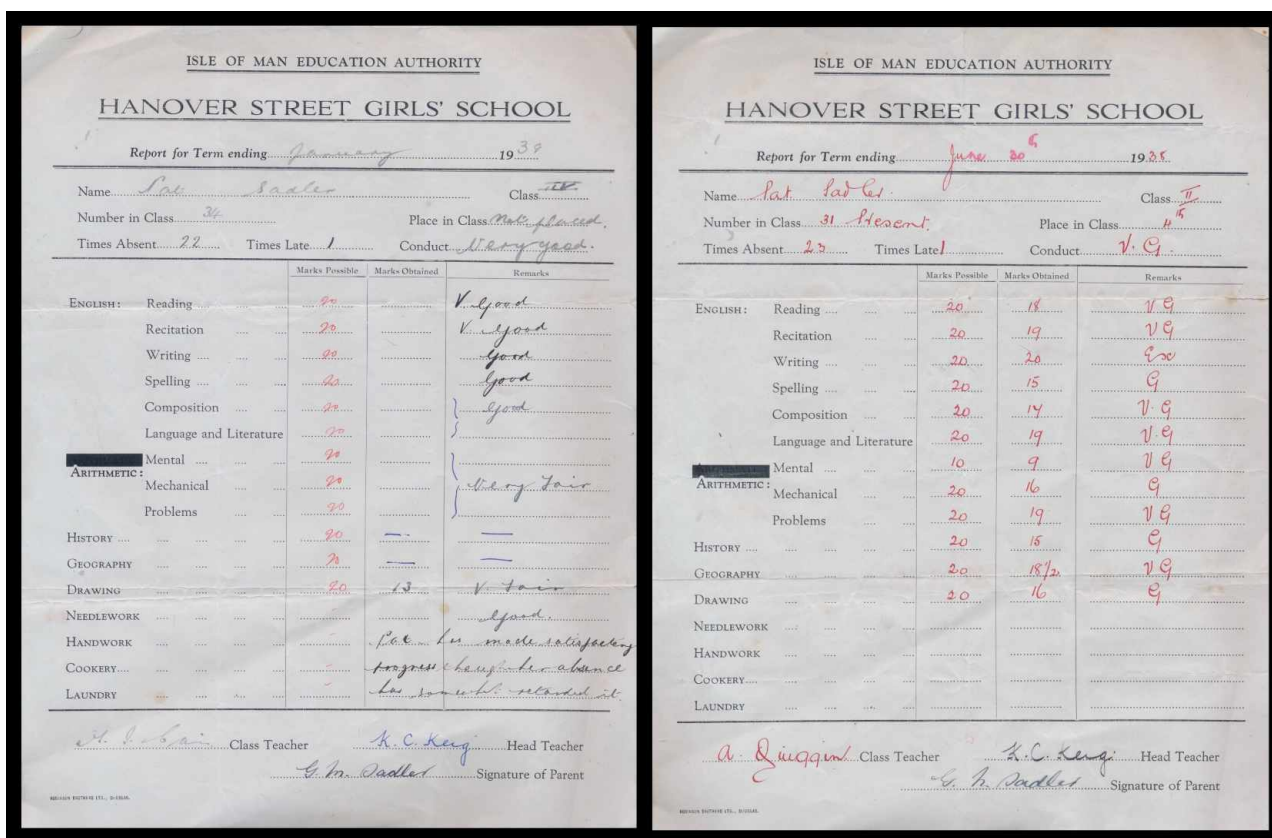 ISLE OF MAN EDUCATION AUTHORITY
HANOVER STREET GIRLS' SCHOOL
Report for Term ending January 1939
Name Pat Sadler Class IV
Number in Class 34 Place in Class Not placed.
Times Absent 22 Times Late 1 Conduct Very good.
Marks Possible Marks Obtained Remarks
ENGLISH: Reading 20 V. Good
Recitation 20 V. Good
Writing 20 Good
Spelling 20 Good
Composition 20 Good
Language and Literature 20
Mental 20
ARITHMETIC:
Mechanical 20 Very Fair
Problems 20
HISTORY 20 — —
GEOGRAPHY 20 — —
DRAWING 20 13 V Fair
NEEDLEWORK Good.
HANDWORK Pat has made satisfactory
COOKERY progress though her absence
LAUNDRY has somewht. retarded it.
Class Teacher K. C. Keig Head Teacher
G. M. Sadler Signature of Parent
ISLE OF MAN EDUCATION AUTHORITY
HANOVER STREET GIRLS' SCHOOL
Report for Term ending June 30th 1938
Name Pat Sadler. Class II
Number in Class 31 Present. Place in Class
Times Absent 23 Times Late 1 Conduct V. G.
Marks Possible Marks Obtained Remarks
ENGLISH: Reading 20 18 V G
Recitation 20 19 V G
Writing 20 20 Exc
Spelling 20 15 G
Composition 20 14 V. G
Language and Literature 20 19 V. G
Mental 10 9 V G
ARITHMETIC:
Mechanical 20 16 G
Problems 20 19 V G
HISTORY 20 15 G
GEOGRAPHY 20 18½ V G
DRAWING 20 16 G
NEEDLEWORK
HANDWORK
COOKERY
LAUNDRY
A. Quiggin Class Teacher K. C. Keig Head Teacher
G. M. Sadler Signature of Parent